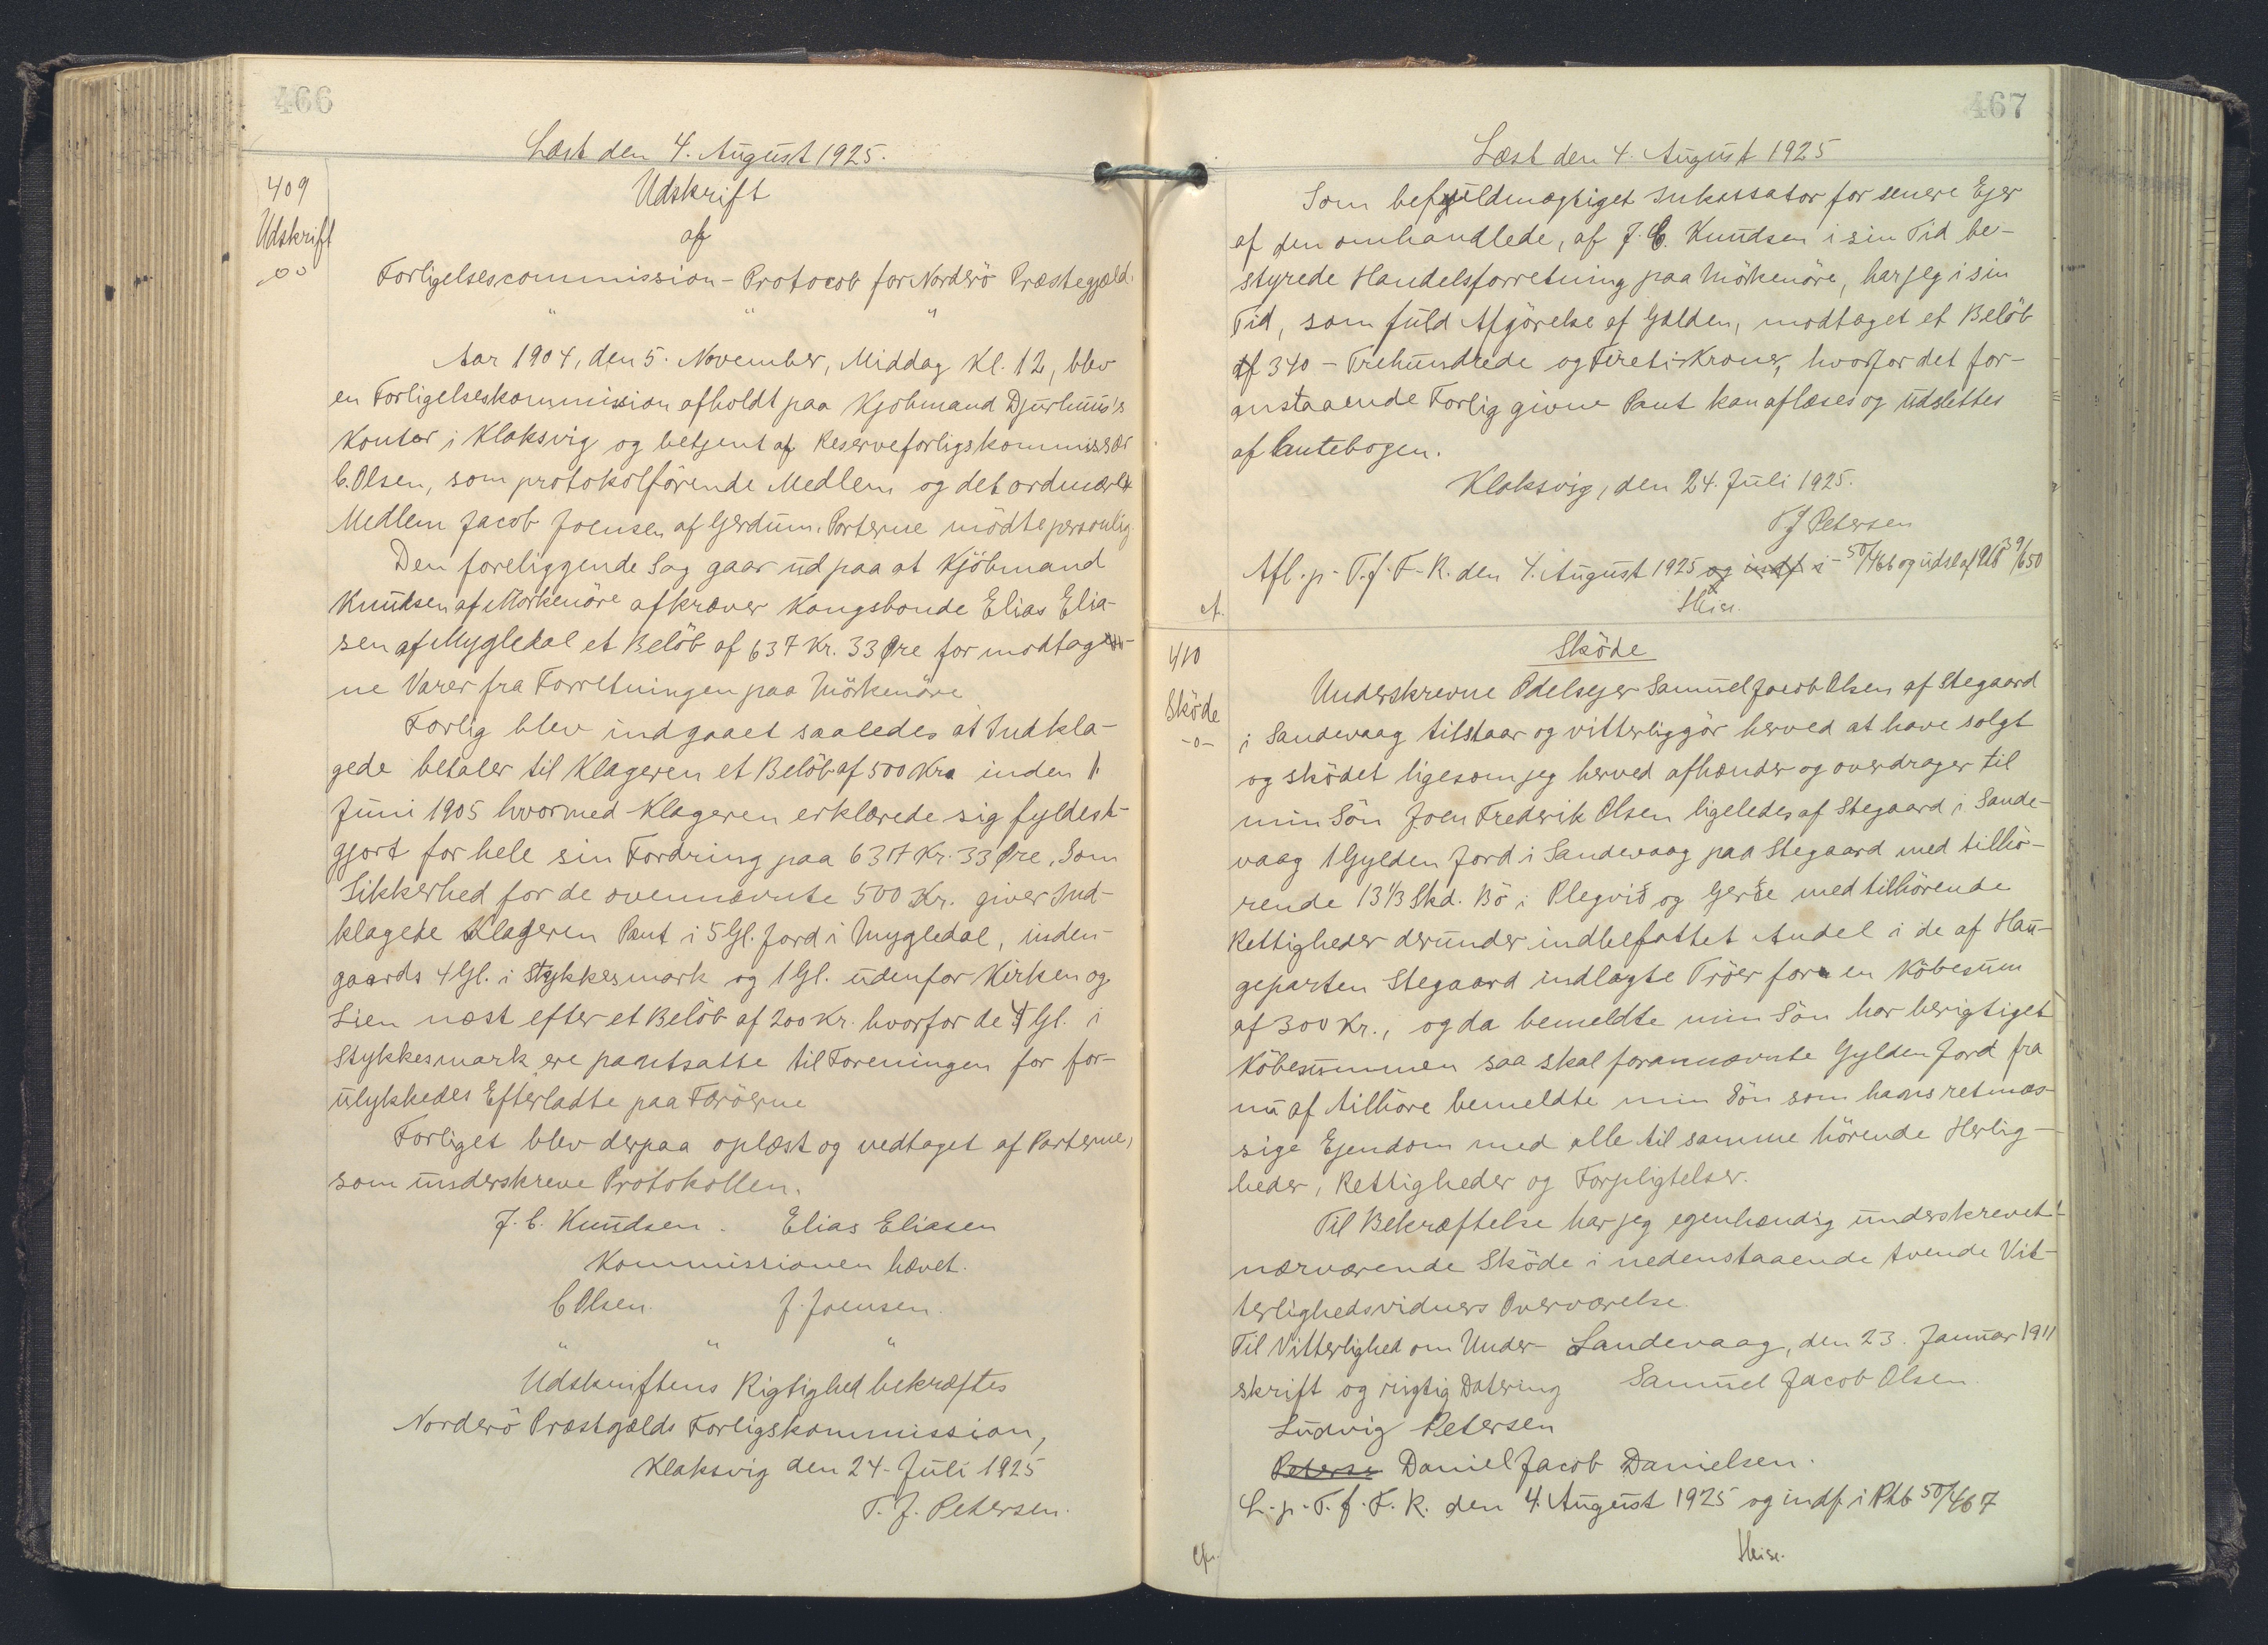 466
Læst den 4. August 1925.
409
Udskrift
Udskrift
af
Forligelsescommission - Protocol for Norderö Præstegjæld.
" " "
Aar 1904, den 5. November, Middag Kl. 12, blev
en Forligelseskommission afholdt paa Kjöbmand Djurhuus's
Kontor i Klaksvig og betjent af Reserveforligskommissær
C. Olsen, som protokolförende Medlem og det ordinære
Medlem Jacob Joensen af Gerdum. Parterne mödte personlig.
Den foreliggende Sag gaar ud paa at Kjöbmand
Knudsen af Mörkenöre afkræver Kongsbonde Elias Elia-
sen af Mygledal et Belöb af 637 Kr. 33 Øre for modtag-
ne Varer fra Forretningen paa Mörkenöre
Forlig blev indgaaet saaledes at Indkla-
gede betaler til Klageren et Belöb af 500 Kr. inden 1.
Juni 1905 hvormed Klageren erklærede sig fyldest-
gjort for hele sin Fordring paa 637 Kr. 33 Øre. Som
Sikkerhed for de ovennævnte 500 Kr. giver Ind-
klagede Klageren Pant i 5 Gl. Jord i Mygledal, inden-
gaards 4 Gl. i Stykkesmark og 1 Gl. udenfor Kirken og
Lien næst efter et Belöb af 200 Kr. hvorfor de 4 Gl. i
Stykkesmark ere pantsatte til Foreningen for for-
ulykkedes Efterladte paa Færöerne
Forliget blev derpaa oplæst og vedtaget af Parterne,
som underskreve Protokollen.
J. C. Knudsen. Elias Eliasen
Kommissionen hævet.
C Olsen. J. Joensen.
" " "
Udskriftens Rigtighed bekræftes
Norderö Præstgælds Forligskommission,
Klaksvig den 24. Juli 1925
T. J. Petersen.
467
Læst den 4. August 1925
Som befuldmægtiget Inkassator for senere Ejer
af den omhandlede, af J. C. Knudsen i sin Tid be-
styrede Handelsforretning paa Mörkenöre, har jeg i sin
Tid, som fuld Afgörelse af Gælden, modtaget et Belöb
af 340 - Trehundrede og Fireti - Kroner, hvorfor det for-
anstaaende Forlig givne Pant kan aflæses og udslettes
af Pantebogen.
Klaksvig, den 24. Juli 1925.
T J Petersen
Afl. p. T. f. F. R. den 4. August 1925 og indf i 50/466 og udsl af Ptb 39/650
A. Heise.
410
Sköde
-o-
Sköde
Underskrevne Odelsejer Samuel Jacob Olsen af Stegaard
i Sandevaag tilstaar og vitterliggör herved at have solgt
og sködet ligesom jeg herved afhænder og overdrager til
min Sön Joen Frederik Olsen ligeledes af Stegaard i Sande-
vaag 1 Gylden Jord i Sandevaag paa Stegaard med tilhö-
rende 13 1/3 Skd. Bö i Plegvið og Gerðe med tilhörende
Rettigheder derunder indbefattet Andel i de af Hau-
geparten Stegaard indlagte Tröer for en Köbesum
af 300 Kr., og da bemeldte min Sön har berigtiget
Köbesummen saa skal forannævnte Gylden Jord fra
nu af tilhöre bemeldte min Sön som hans retmæs-
sige Ejendom med alle til samme hörende Herlig-
heder, Rettigheder og Forpligtelser.
Til Bekræftelse har jeg egenhændig underskrevet
nærværende Sköde i nedenstaaende tvende Vit-
terlighedsvidners Overværelse.
Til Vitterlighed om Under- Sandevaag, den 23. Januar 1911
skrift og rigtig Datering Samuel Jacob Olsen.
Ludvig Petersen
Peterse Daniel Jacob Danielsen.
L. p. T. f. F. R. den 4. August 1925 og indf i Ptb 50/467
Heise.